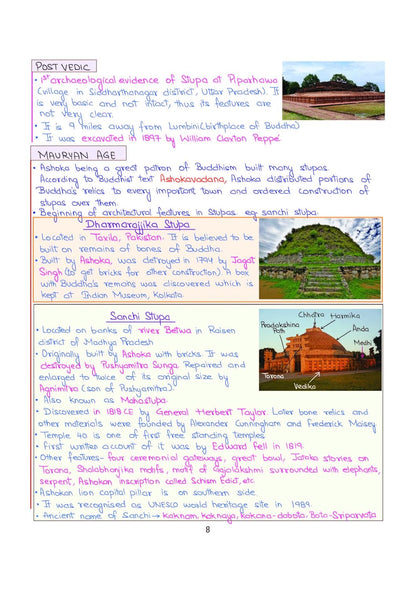 POST VEDIC
• 1st archaeological evidence of Stupa at Piparhawa
(village in Siddharthanagar district, Uttar Pradesh). It
is very basic and not intact, thus its features are
not very clear.
• It is 9 miles away from Lumbini (birthplace of Buddha)
• It was excavated in 1897 by William Claxton Peppé
MAURYAN AGE
• Ashoka being a great patron of Buddhism built many stupas.
According to Buddhist text Ashokavadana, Ashoka distributed portions of
Buddha's relics to every important town and ordered construction of
stupas over them.
• Beginning of architectural features in Stupas. eg sanchi stupa.
Dharmarajjika Stupa
• Located in Taxila, Pakistan. It is believed to be
built on remains of bones of Buddha.
• Built by Ashoka, was destroyed in 1794 by Jagat
Singh (to get bricks for other construction). A box
with Buddha's remains was discovered which is
kept at Indian Museum, Kolkata.
Sanchi Stupa
• Located on banks of river Betwa in Raisen
district of Madhya Pradesh
• Originally built by Ashoka with bricks. It was
destroyed by Pushyamitra Sunga. Repaired and
enlarged to twice of its original size by
Agnimitra (son of Pushyamitra).
Chhatra
Harmika
Pradakshina
Path
Anda
Medhi
Torana
Vedika
• Also known as Mahastupa.
• Discovered in 1818 CE by General Herbert Taylor. Later bone relics and
other materials were founded by Alexander Cunningham and Frederick Maisey
• Temple 40 is one of first free standing temples
• First written account of it was by Edward Fell in 1819.
• Other features- four ceremonial gateways, great bowl, Jataka stories on
Torana, Shalabhanjika motifs, motif of Gajalakshmi surrounded with elephants,
serpent, Ashokan inscription called Schism Edict, etc
• Ashokan lion capital pillar is on southern side.
• It was recognised as UNESCO world heritage site in 1989.
• Ancient name of Sanchi → kaknam, kaknaya, kakana-dabota, Bota-Sriparvata
8